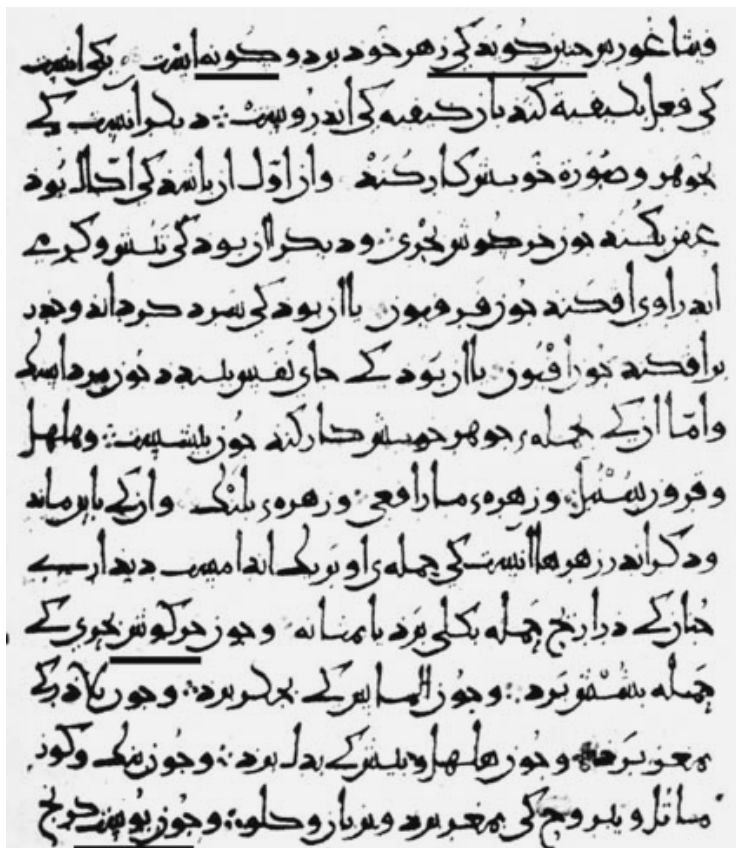 فیثاغورس جنین کوید کی زهر خود بر دو کونه است . یکی انست
کی فعل بکیفیه کند بان کیفیه کی اندروست ؛ دیکر انست کی
بجوهر و صورة خویش کار کند واز اول ان باشد کی اکال بود
عفن بکند جون خرکوش بحری ؛ ودیکر ان بود کی تبش وکرمی
اندراوی افکند جون فرفیون یا ان بود کی سرد کرداند وخدر
برافکند جون افیون یا ان بود کی جای نفس ببندد جون مرداسنک
واما ان کی بجمله ء جوهر خویش کار کند جون بیشست ؛ وهلهل
وقرون سنبل ؛ وزهره ء مار افعی ؛ وزهره ء بلنک وان کی باین ماند
ودکر اندر زهرها انست کی جمله ی او بر یک اندامست دیداری
جنان کی ذراریح جمله بکلی برد یا بمثانه وجون خرکوش بحری کی
جمله بشش برد ؛ وجون الماس کی بجکر برد ؛ وجون کی
بمغز برد ؛ وجون هلهل وبیش کی بدل برد ؛ وجون بنک وکوز
ماثل ویبروح کی بمغز برد وبزبان وکلو ؛ وجون بوست